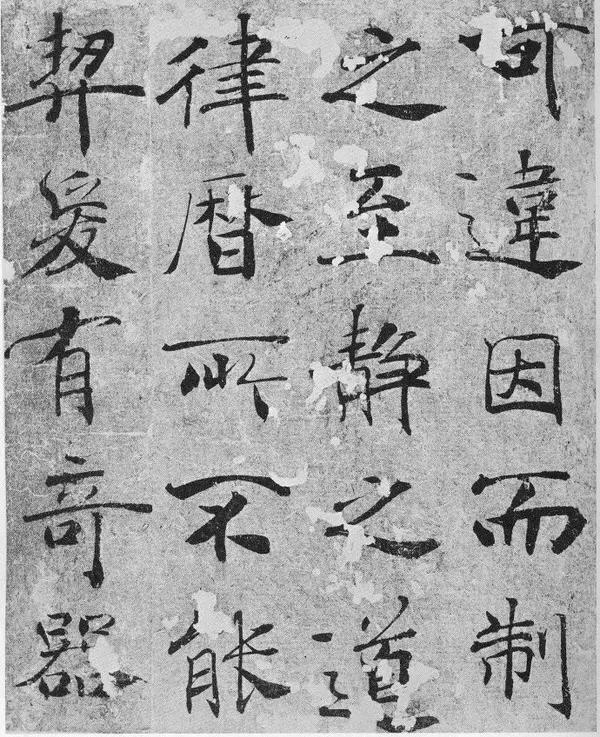 可違因而制
之至静之道
律曆所不能
契爰有奇器